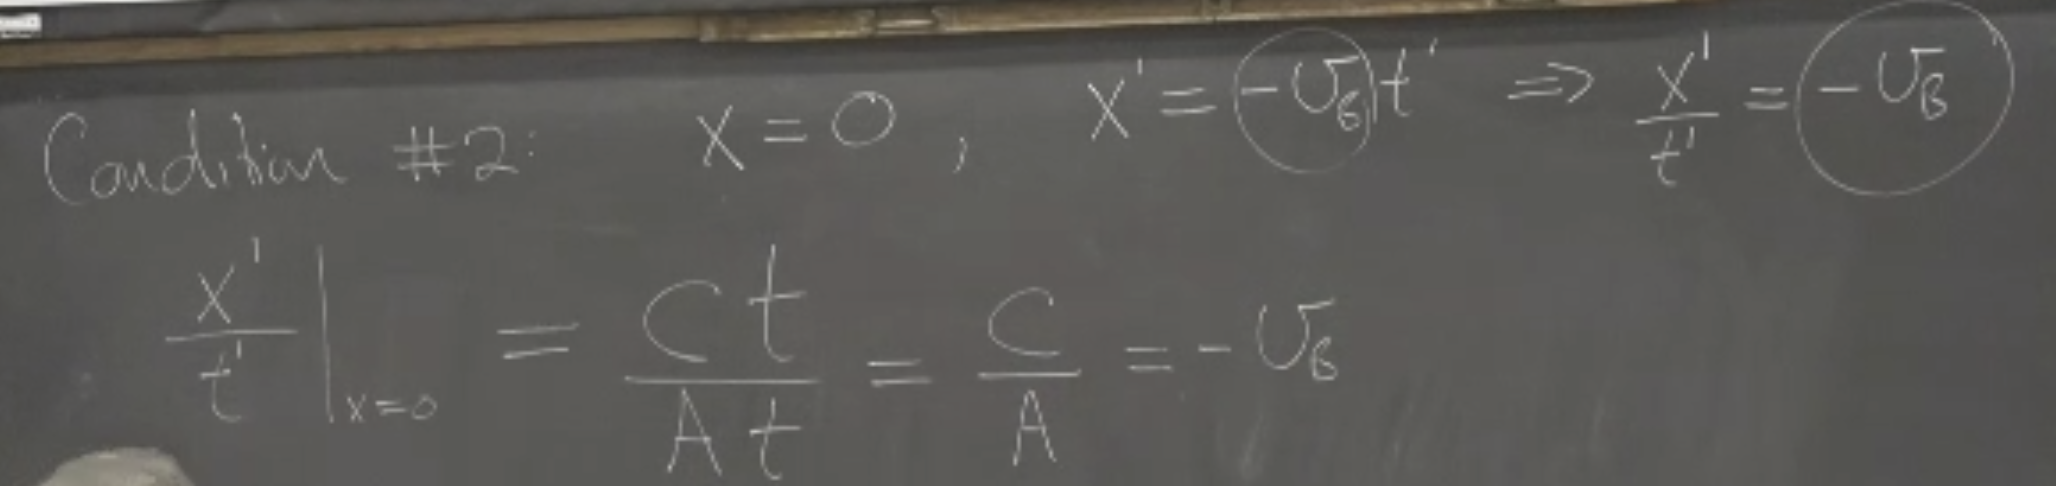 Condition #2: x = 0 , x' = -v_B t' ⇒ x'/t' = -v_B
x'/t' |_{x=0} = Ct/At = C/A = -v_B